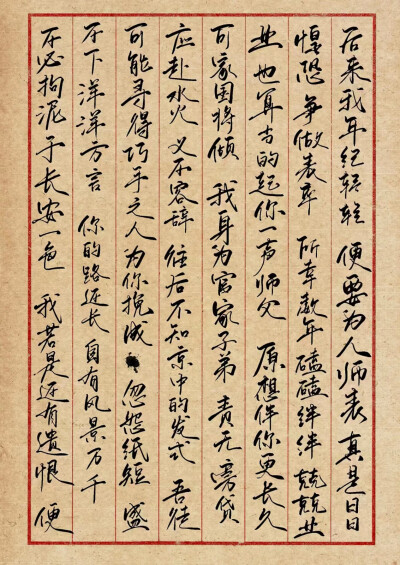 后来我年纪轻轻 便要为人师表 真是日日
惶恐 争做表率 所幸数年磕磕绊绊 兢兢业
业 也算当的起你一声师父 原想伴你更长久
可家国将倾 我身为官家子弟 责无旁贷
应赴水火 义不容辞 往后不知京中的发式 吾徒
可能寻得巧手之人为你挽成 忽怨纸短 盛
不下洋洋方言 你的路还长 自有风景万千
不必拘泥于长安一色 我若是还有遗恨 便